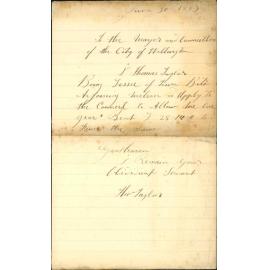 June 30 1883
To the Mayor and Councillors
of the City of Wellington
I Thomas Taylor
Being Lessee of Town Belt
Adjoining to Apply to
the Council to Allow me one
years Rent £ 28
the Same
Gentlemen
I Remain Your
Obedient Servant
Thos Taylor